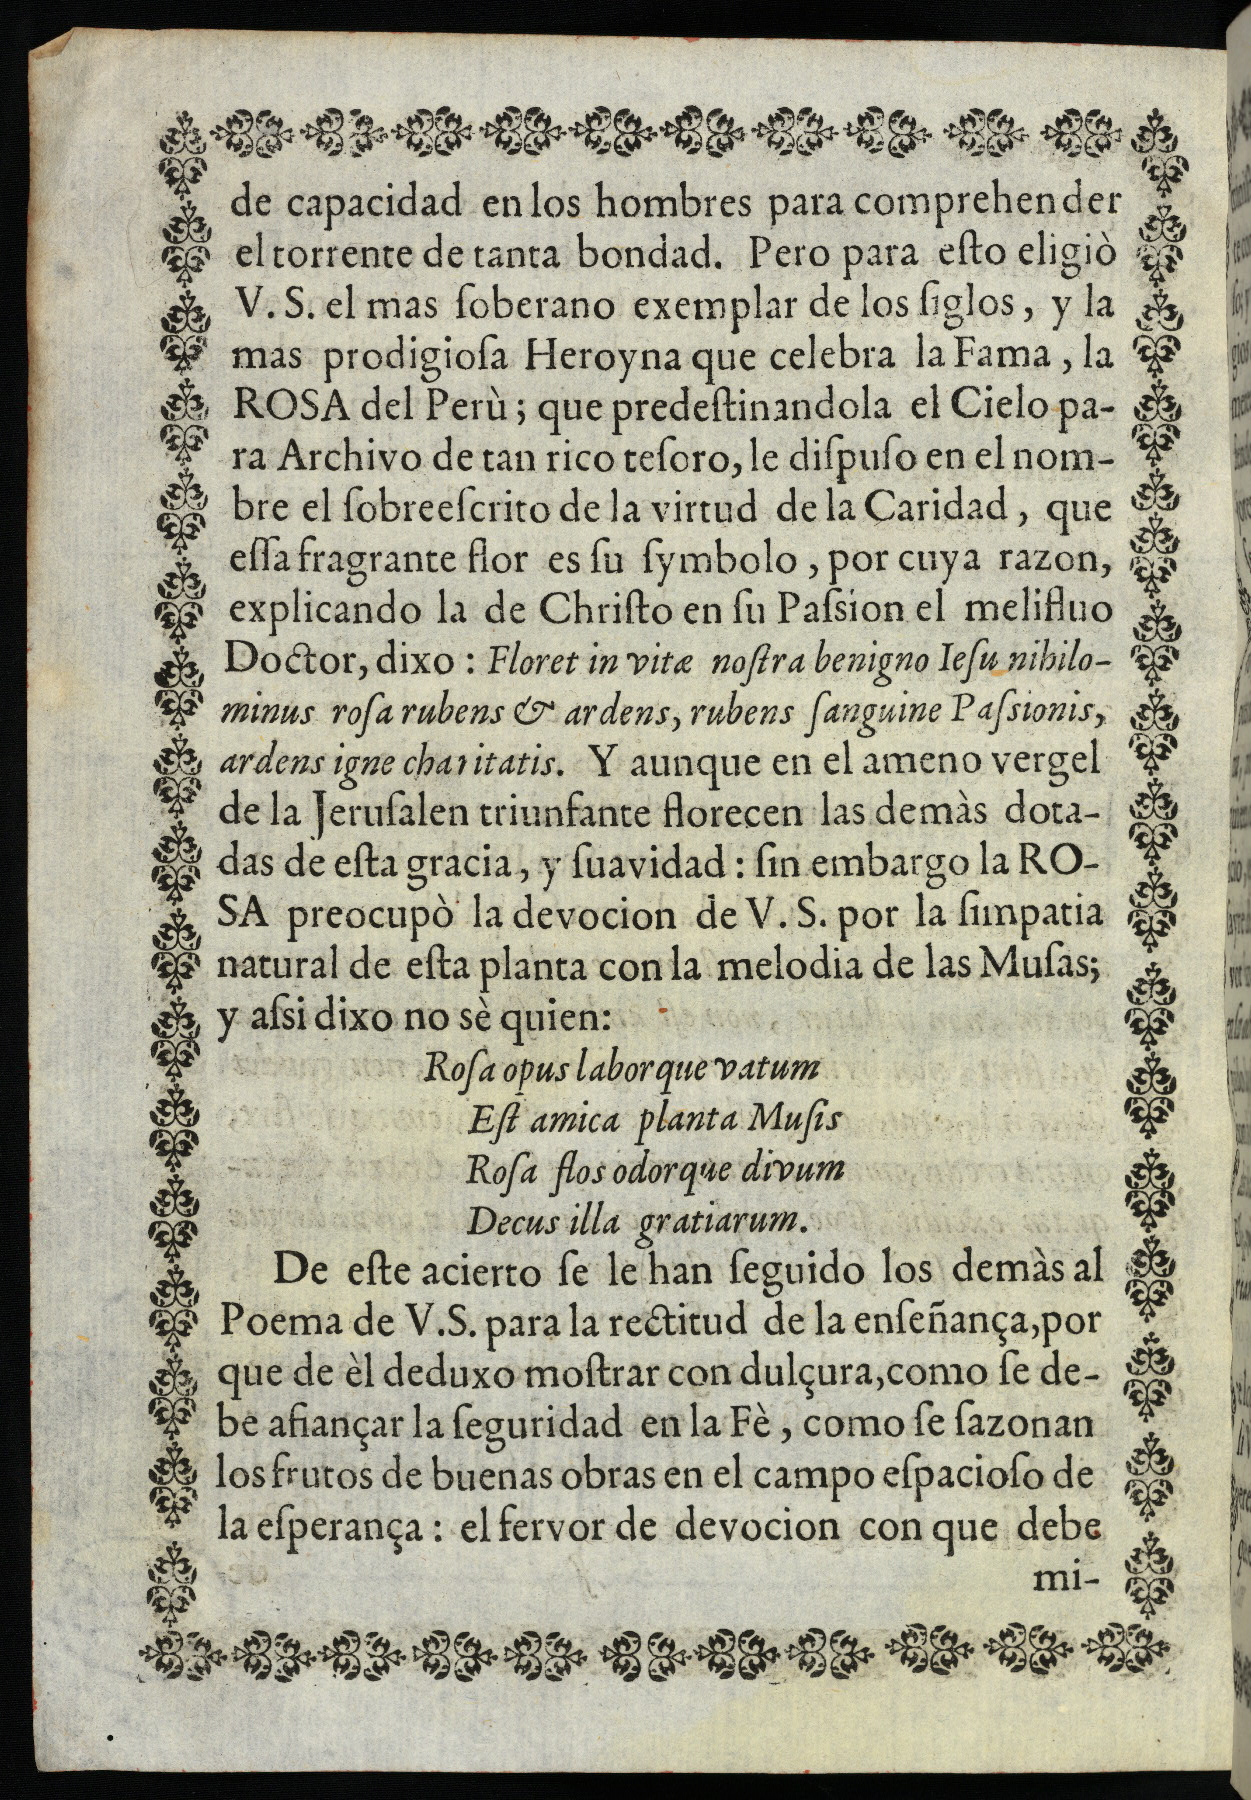 de capacidad en los hombres para comprehender
el torrente de tanta bondad. Pero para eſto eligiò
V. S. el mas ſoberano exemplar de los ſiglos, y la
mas prodigioſa Heroyna que celebra la Fama, la
ROSA del Perù; que predeſtinandola el Cielo pa-
ra Archivo de tan rico teſoro, le diſpuſo en el nom-
bre el ſobreeſcrito de la virtud de la Caridad, que
eſſa fragrante flor es ſu ſymbolo, por cuya razon,
explicando la de Chriſto en ſu Paſsion el melifluo
Doctor, dixo: Floret in vitæ noſtra benigno Ieſu nihilo-
minus roſa rubens & ardens, rubens ſanguine Paſsionis,
ardens igne charitatis. Y aunque en el ameno vergel
de la Jeruſalen triunfante florecen las demàs dota-
das de eſta gracia, y ſuavidad: ſin embargo la RO-
SA preocupò la devocion de V. S. por la ſimpatia
natural de eſta planta con la melodia de las Muſas;
y aſsi dixo no sè quien:
Roſa opus laborque vatum
Eſt amica planta Muſis
Roſa flos odorque divum
Decus illa gratiarum.
De eſte acierto ſe le han ſeguido los demàs al
Poema de V.S. para la rectitud de la enſeñança, por
que de èl deduxo moſtrar con dulçura, como ſe de-
be afiançar la ſeguridad en la Fè, como ſe ſazonan
los frutos de buenas obras en el campo eſpacioſo de
la eſperança: el fervor de devocion con que debe
mi-